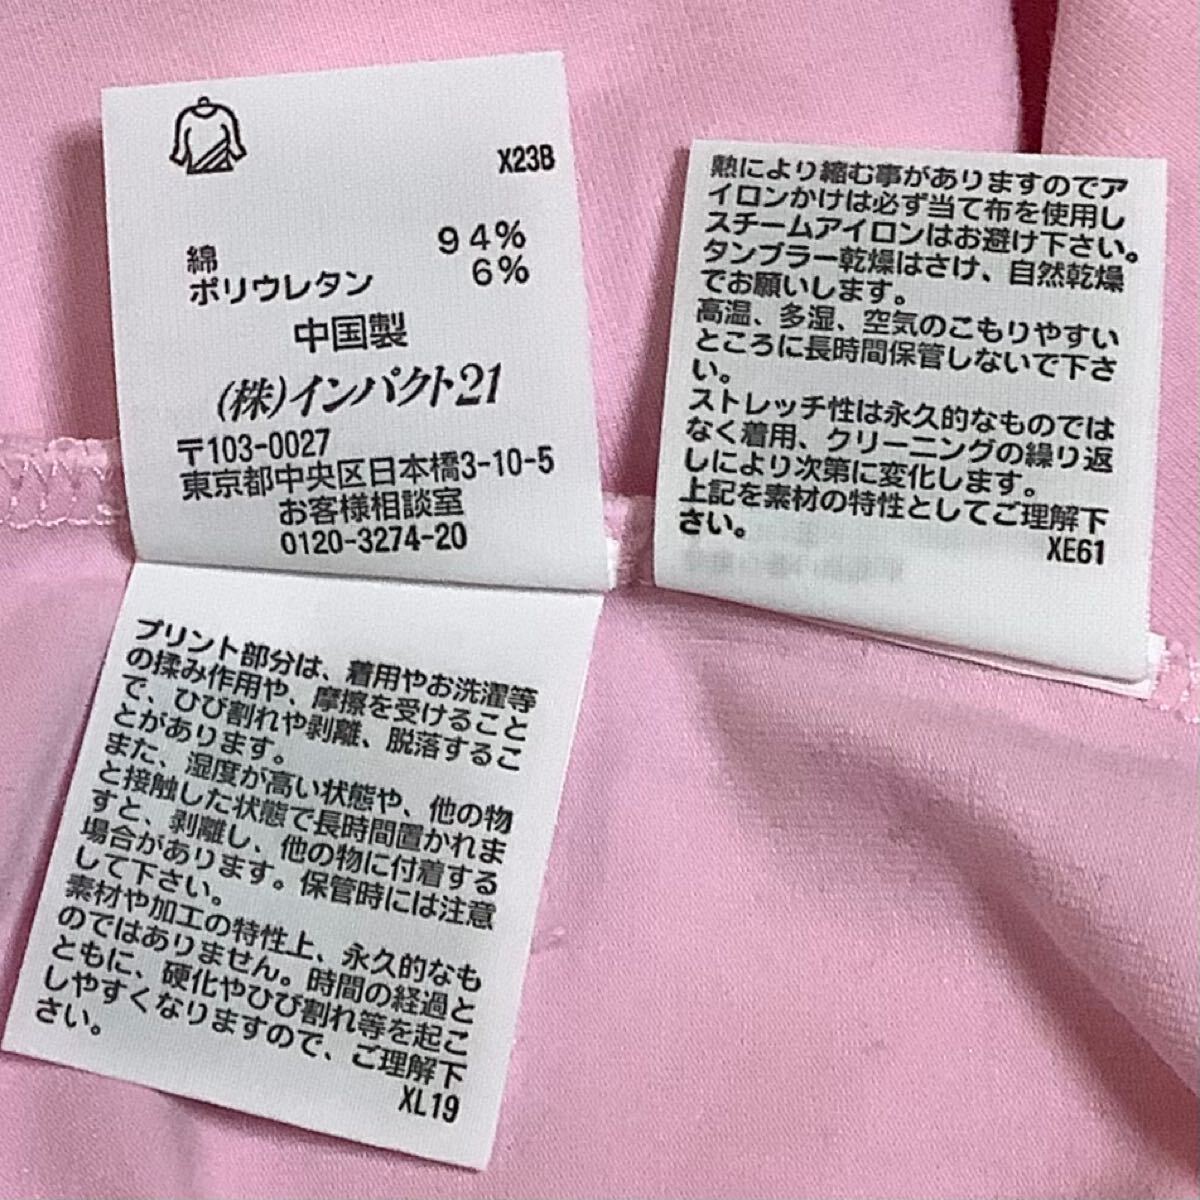 X23B
綿 94%
ポリウレタン 6%
中国製
(株)インパクト21
〒103-0027
東京都中央区日本橋3-10-5
お客様相談室
0120-3274-20
熱により縮む事がありますのでア
イロンかけは必ず当て布を使用し
スチームアイロンはお避け下さい。
タンブラー乾燥はさけ、自然乾燥
でお願いします。
高温、多湿、空気のこもりやすい
ところに長時間保管しないで下さ
い。
ストレッチ性は永久的なものでは
なく着用、クリーニングの繰り返
しにより次第に変化します。
上記を素材の特性としてご理解下
さい。
XE61
プリント部分は、着用やお洗濯等
の揉み作用や、摩擦を受けること
で、ひび割れや剥離、脱落するこ
とがあります。
また、湿度が高い状態や、他の物
と接触した状態で長時間置かれま
すと、剥離し、他の物に付着する
場合があります。保管時には注意
して下さい。
素材や加工の特性上、永久的なも
のではありません。時間の経過と
ともに、硬化やひび割れ等を起こ
しやすくなりますので、ご理解下
さい。
XL19